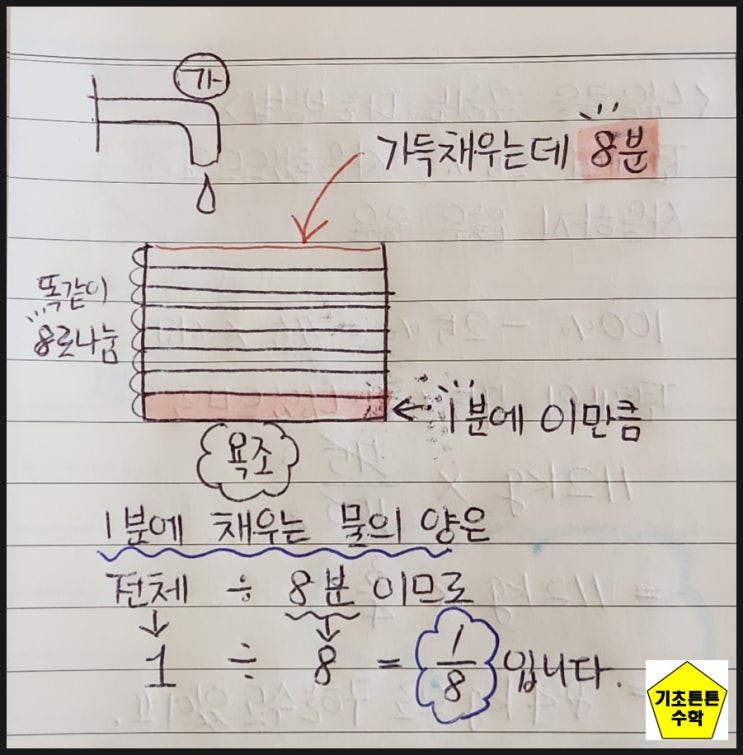 가
가득채우는데 8분
똑같이
8로나눔
1분에 이만큼
욕조
1분에 채우는 물의 양은
전체 ÷ 8분 이므로
1 ÷ 8 = 1/8 입니다.
기초튼튼
수학